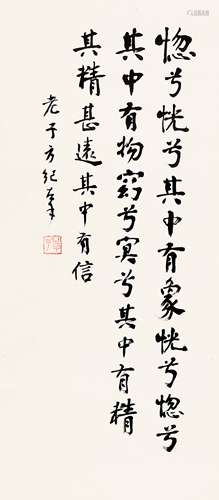 惚兮恍兮其中有象恍兮惚兮
其中有物窈兮冥兮其中有精
其精甚遠其中有信
老子方紀左手